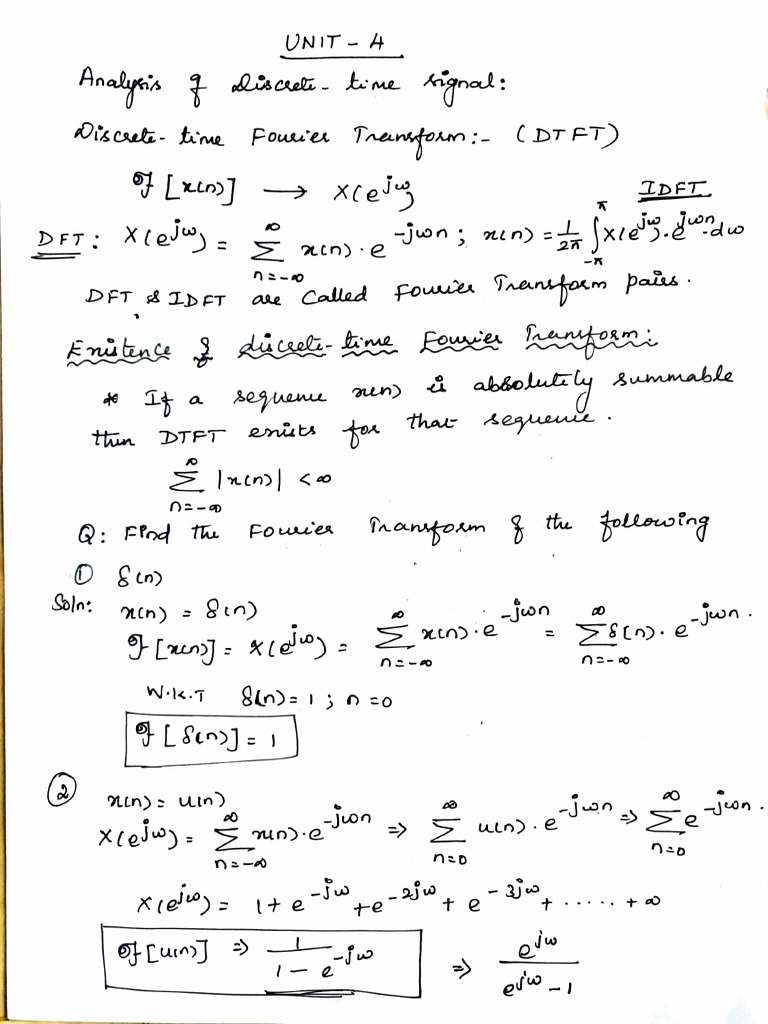 UNIT - 4
Analysis of discrete-time signal:
Discrete-time Fourier Transform:- (DTFT)
F[x(n)] → X(e^jω)
IDFT
DFT: X(e^jω) = ∑_{n=-∞}^{∞} x(n)·e^-jωn ; x(n) = 1/2π ∫_{-π}^{π} X(e^jω)·e^jωn·dω
DFT & IDFT are called Fourier Transform pairs.
Existence of discrete-time Fourier Transform:
* If a sequence x(n) is absolutely summable
then DTFT exists for that sequence.
∑_{n=-∞}^{∞} |x(n)| < ∞
Q: Find the Fourier Transform of the following
① δ(n)
Soln: x(n) = δ(n)
F[x(n)] = X(e^jω) = ∑_{n=-∞}^{∞} x(n)·e^-jωn = ∑_{n=-∞}^{∞} δ(n)·e^-jωn.
W.K.T δ(n) = 1 ; n=0
F[δ(n)] = 1
② x(n) = u(n)
X(e^jω) = ∑_{n=-∞}^{∞} x(n)·e^-jωn ⇒ ∑_{n=0}^{∞} u(n)·e^-jωn ⇒ ∑_{n=0}^{∞} e^-jωn.
X(e^jω) = 1 + e^-jω + e^-2jω + e^-3jω + ...... + ∞
F[u(n)] ⇒ 1/(1 - e^-jω) ⇒ e^jω/(e^jω - 1)